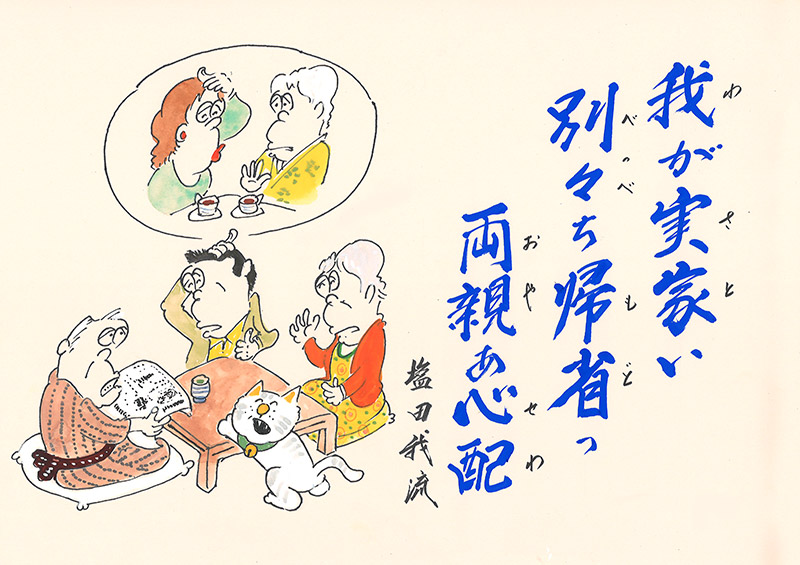 我が実家い
わ さと
別々ち帰省っ
べっべ もど
両親あ心配
おや せわ
塩田我流